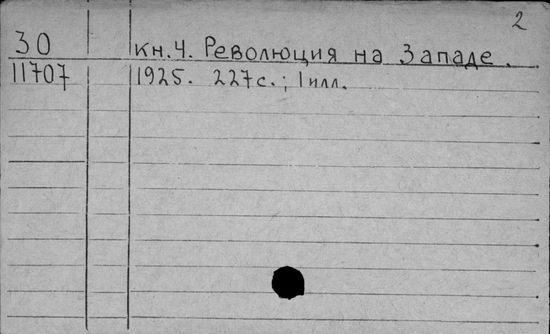 2
30 кн.4. Революция на Западе.
11707 1925. 227с.; 1 илл.